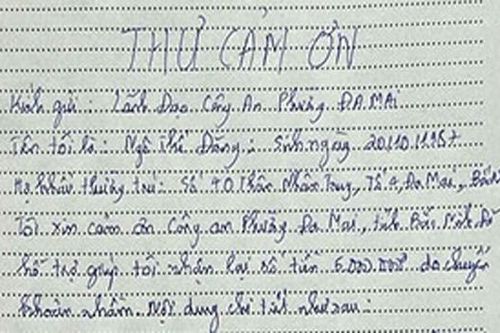 THƯ CẢM ƠN
Kính gửi: Lãnh Đạo Công An Phường ĐA MAI
Tên tôi là: Ngô Thế Đăng; Sinh ngày 20.10.1957
Hộ khẩu thường trú: Số 40 Thân Nhân Trung, Tổ 4, Đa Mai, Bắc
Tôi xin cảm ơn Công an Phường Đa Mai, tỉnh Bắc Ninh đã
hỗ trợ giúp tôi nhận lại số tiền 5.000.000đ do chuyển
khoản nhầm. Nội dung chi tiết như sau: